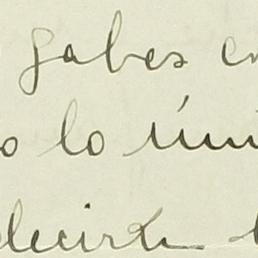 gabes en
o lo úni
decirte